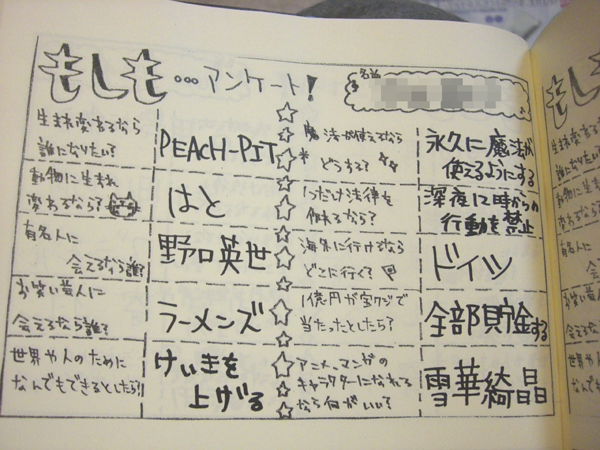 もしも…アンケート!
名前
生まれ変わるなら
誰になりたい?
PEACH-PIT
動物に生まれ
変わるなら?
はと
有名人に
会えるなら誰?
野口英世
お笑い芸人に
会えるなら誰?
ラーメンズ
世界や人のために
なんでもできるとしたら?
けいきを
上げる
魔法が使えるなら
どうする?
永久に魔法が
使えるようにする
1つだけ法律を
作れるなら?
深夜12時からの
行動を禁止
海外に行けるなら
どこに行く?
ドイツ
1億円が宝クジで
当たったとしたら?
全部貯金する
アニメ、マンガの
キャラクターになれる
なら何がいい?
雪華綺晶
もし
生まれ変
誰に
動物に
変わる
有名人
会
お笑い
会え
世界や
なんで